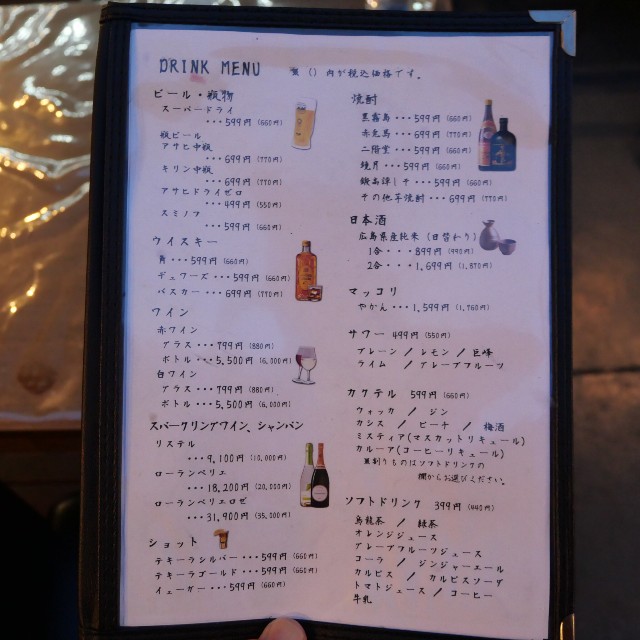 DRINK MENU
※（）内が税込価格です。
ビール・瓶物
スーパードライ
・・・599円（660円）
瓶ビール
アサヒ中瓶
・・・699円（770円）
キリン中瓶
・・・699円（770円）
アサヒドライゼロ
・・・499円（550円）
スミノフ
・・・599円（660円）
ウイスキー
角・・・599円（660円）
デュワーズ・・・599円（660円）
バスカー・・・699円（770円）
ワイン
赤ワイン
グラス・・・799円（880円）
ボトル・・・5,500円（6,000円）
白ワイン
グラス・・・799円（880円）
ボトル・・・5,500円（6,000円）
スパークリングワイン、シャンパン
リステル
・・・9,100円（10,000円）
ローランペリエ
・・・18,200円（20,000円）
ローランペリエロゼ
・・・31,900円（35,000円）
ショット
テキーラシルバー・・・599円（660円）
テキーラゴールド・・・599円（660円）
イェーガー・・・599円（660円）
焼酎
黒霧島・・・599円（660円）
赤兎馬・・・699円（770円）
二階堂・・・599円（660円）
鏡月・・・599円（660円）
・・・599円（660円）
その他芋焼酎・・・699円（770円）
日本酒
広島県産純米（日替わり）
1合・・・899円（990円）
2合・・・1,699円（1,870円）
マッコリ
やかん・・・1,599円（1,760円）
サワー 499円（550円）
プレーン／レモン／巨峰
ライム／グレープフルーツ
カクテル 599円（660円）
ウォッカ／ジン
カシス／ピーチ／梅酒
ミスティア（マスカットリキュール）
カルーア（コーヒーリキュール）
※割りものはソフトドリンクの
欄からお選びください。
ソフトドリンク 399円（440円）
烏龍茶／緑茶
オレンジジュース
グレープフルーツジュース
コーラ／ジンジャーエール
カルピス／カルピスソーダ
トマトジュース／コーヒー
牛乳